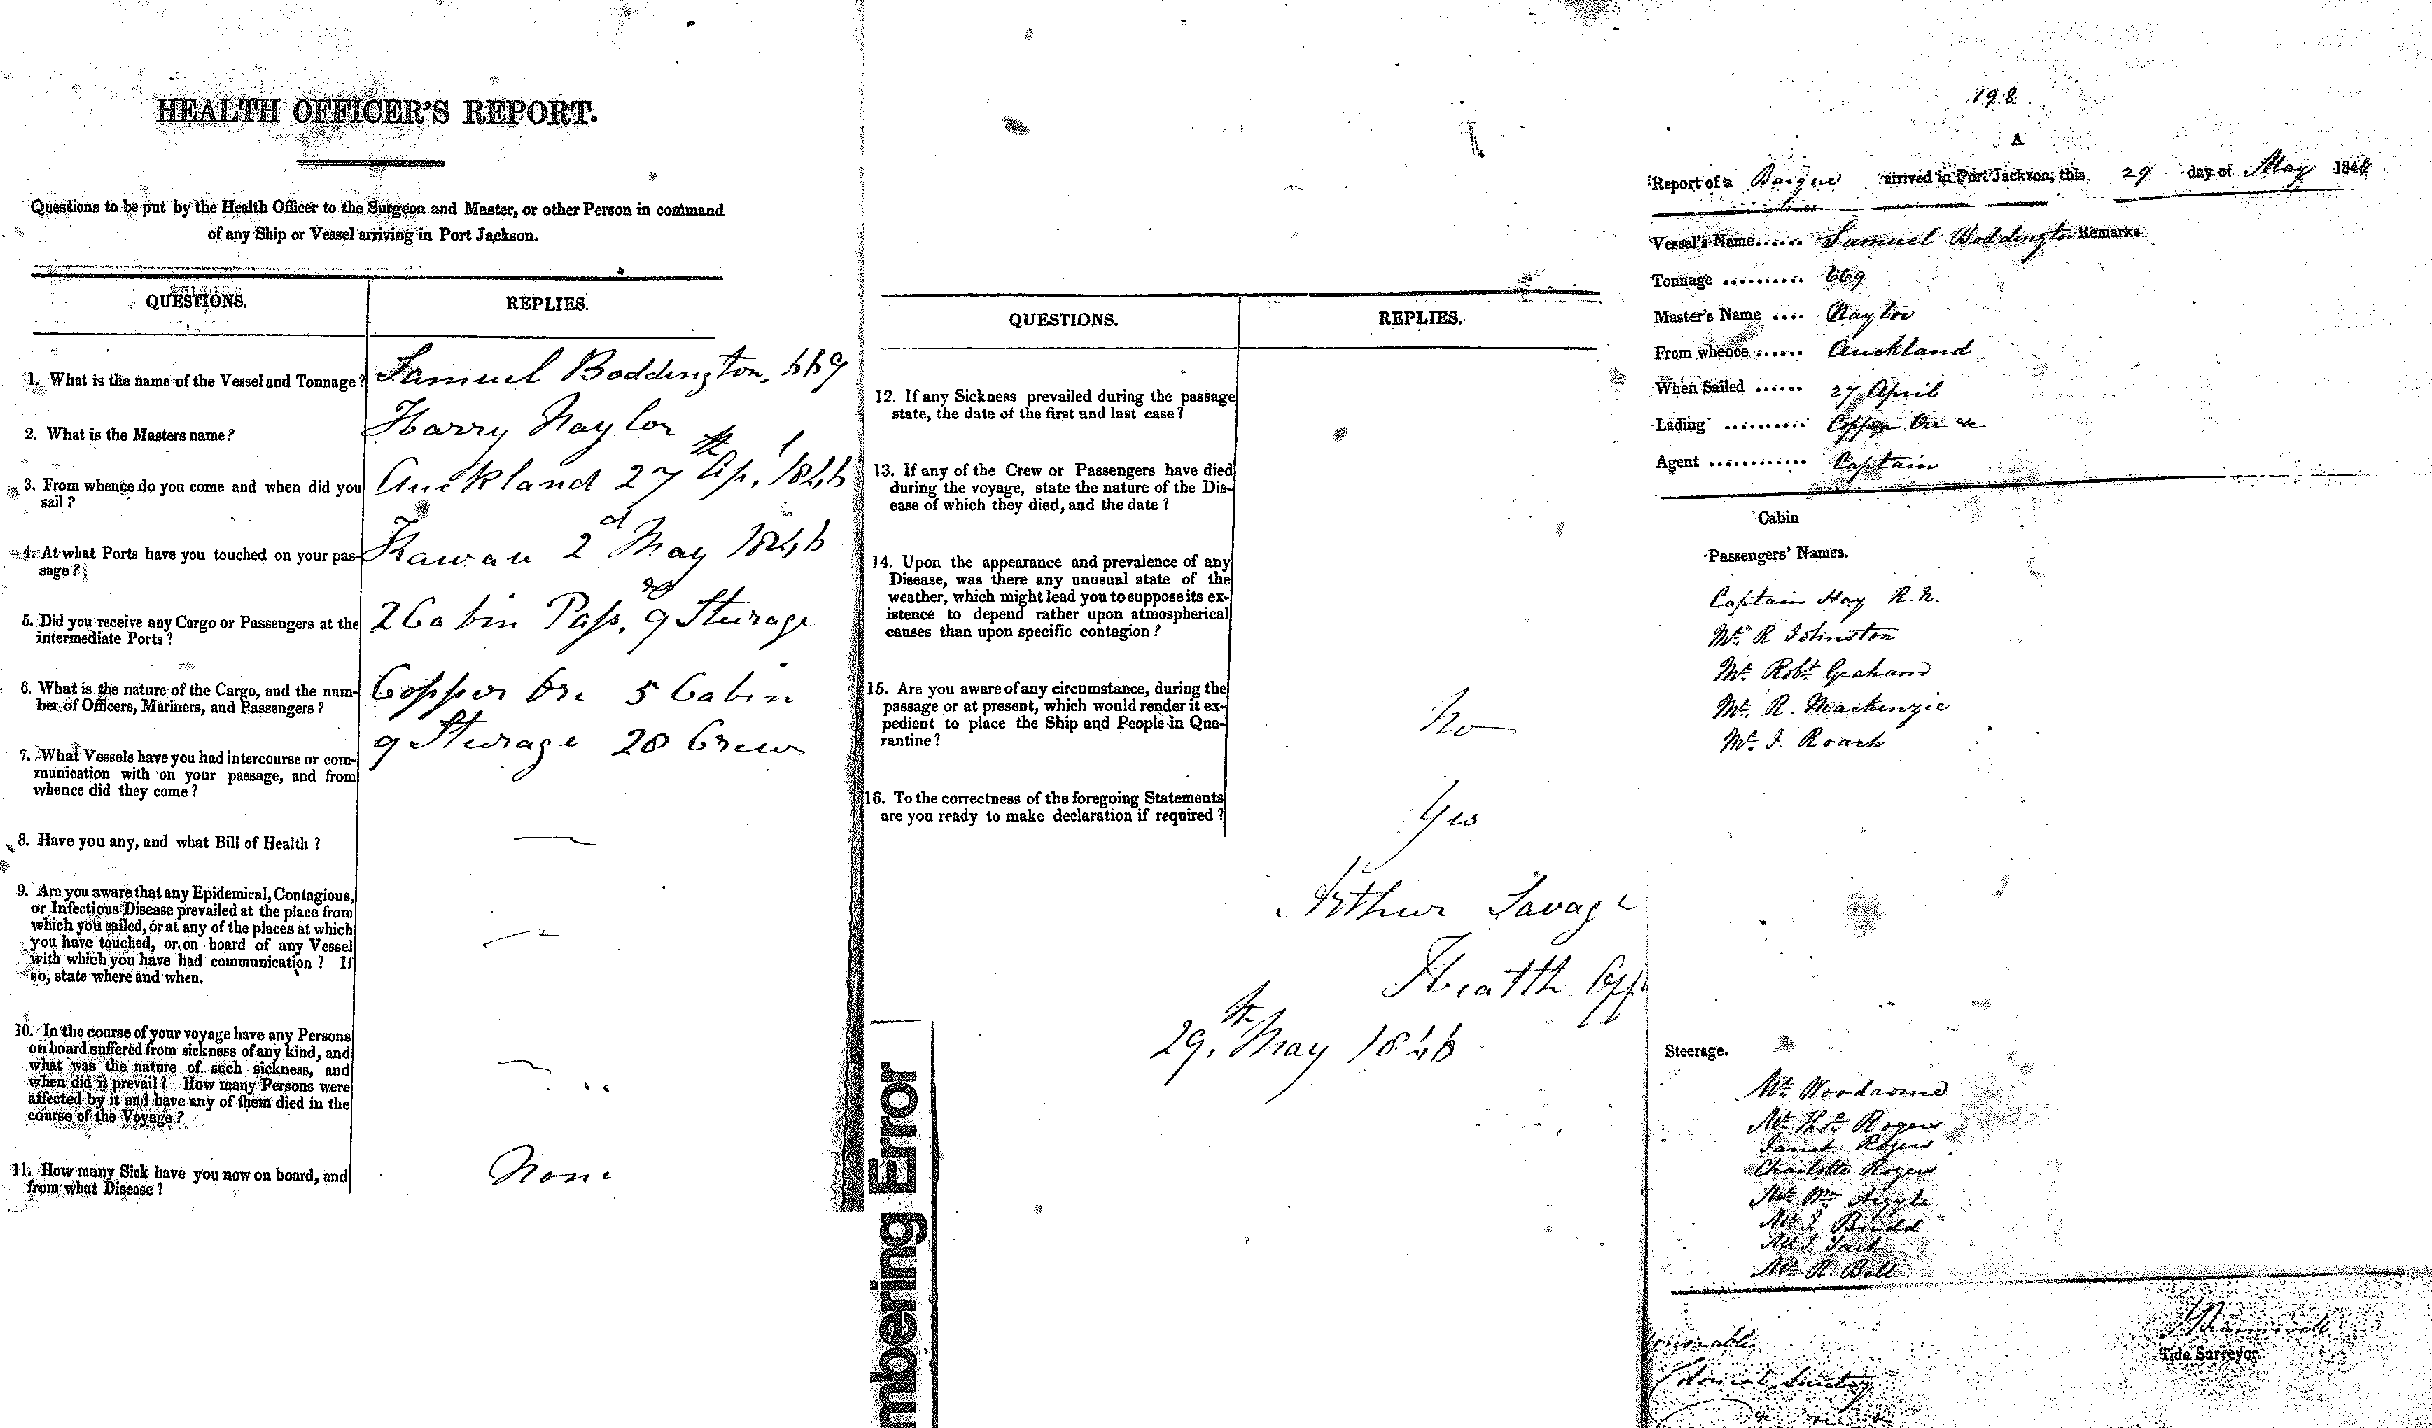 HEALTH OFFICER'S REPORT.
Questions to be put by the Health Officer to the Surgeon and Master, or other Person in command
of any Ship or Vessel arriving in Port Jackson.
QUESTIONS.
REPLIES.
1. What is the name of the Vessel and Tonnage?
Samuel Boddington, 669
2. What is the Masters name?
Harry Naylor
3. From whence do you come and when did you
sail?
Auckland 27th Ap. 1846
4. At what Ports have you touched on your pas-
sage?
Kawau 2d May 1846
5. Did you receive any Cargo or Passengers at the
intermediate Ports?
2 Cabin Pass. 9 Sturage
6. What is the nature of the Cargo, and the num-
ber of Officers, Mariners, and Passengers?
Copper Ore 5 Cabin
9 Sturage 28 Crew
7. What Vessels have you had intercourse or com-
munication with on your passage, and from
whence did they come?
8. Have you any, and what Bill of Health?
9. Are you aware that any Epidemical, Contagious,
or Infectious Disease prevailed at the place from
which you sailed, or at any of the places at which
you have touched, or on board of any Vessel
with which you have had communication? If
so, state where and when.
10. In the course of your voyage have any Persons
on board suffered from sickness of any kind, and
what was the nature of such sickness, and
when did it prevail? How many Persons were
affected by it and have any of them died in the
course of the Voyage?
11. How many Sick have you now on board, and
from what Disease?
None
QUESTIONS.
REPLIES.
12. If any Sickness prevailed during the passage
state, the date of the first and last case?
13. If any of the Crew or Passengers have died
during the voyage, state the nature of the Dis-
ease of which they died, and the date?
14. Upon the appearance and prevalence of any
Disease, was there any unusual state of the
weather, which might lead you to suppose its ex-
istence to depend rather upon atmospherical
causes than upon specific contagion?
15. Are you aware of any circumstance, during the
passage or at present, which would render it ex-
pedient to place the Ship and People in Qua-
rantine?
No
16. To the correctness of the foregoing Statements
are you ready to make declaration if required?
Yes
Arthur Savage
Health Off
29th May 1846
mbering Error
198
A
Report of a Barque arrived in Port Jackson, this 29 day of May 1846
Vessel's Name...... Samuel Boddington Remarks
Tonnage .......... 669
Master's Name .... Naylor
From whence ...... Auckland
When Sailed ...... 27 April
Lading .......... Copper Ore &c
Agent ............ Captain
Cabin
Passengers' Names.
Captain Hay R.N.
Mr. R Johnston
Mr. Robt. Graham
Mr. R. Mackenzie
Mr. J. Roach
Steerage.
Mr. Woodroome
Mr. Thos. Rogers
Janet Rogers
Charlotte Rogers
Mr. Wm.
Mr. J.
Mr. J.
Mr. R. Bell
Tide Surveyor
Colonial Secretary